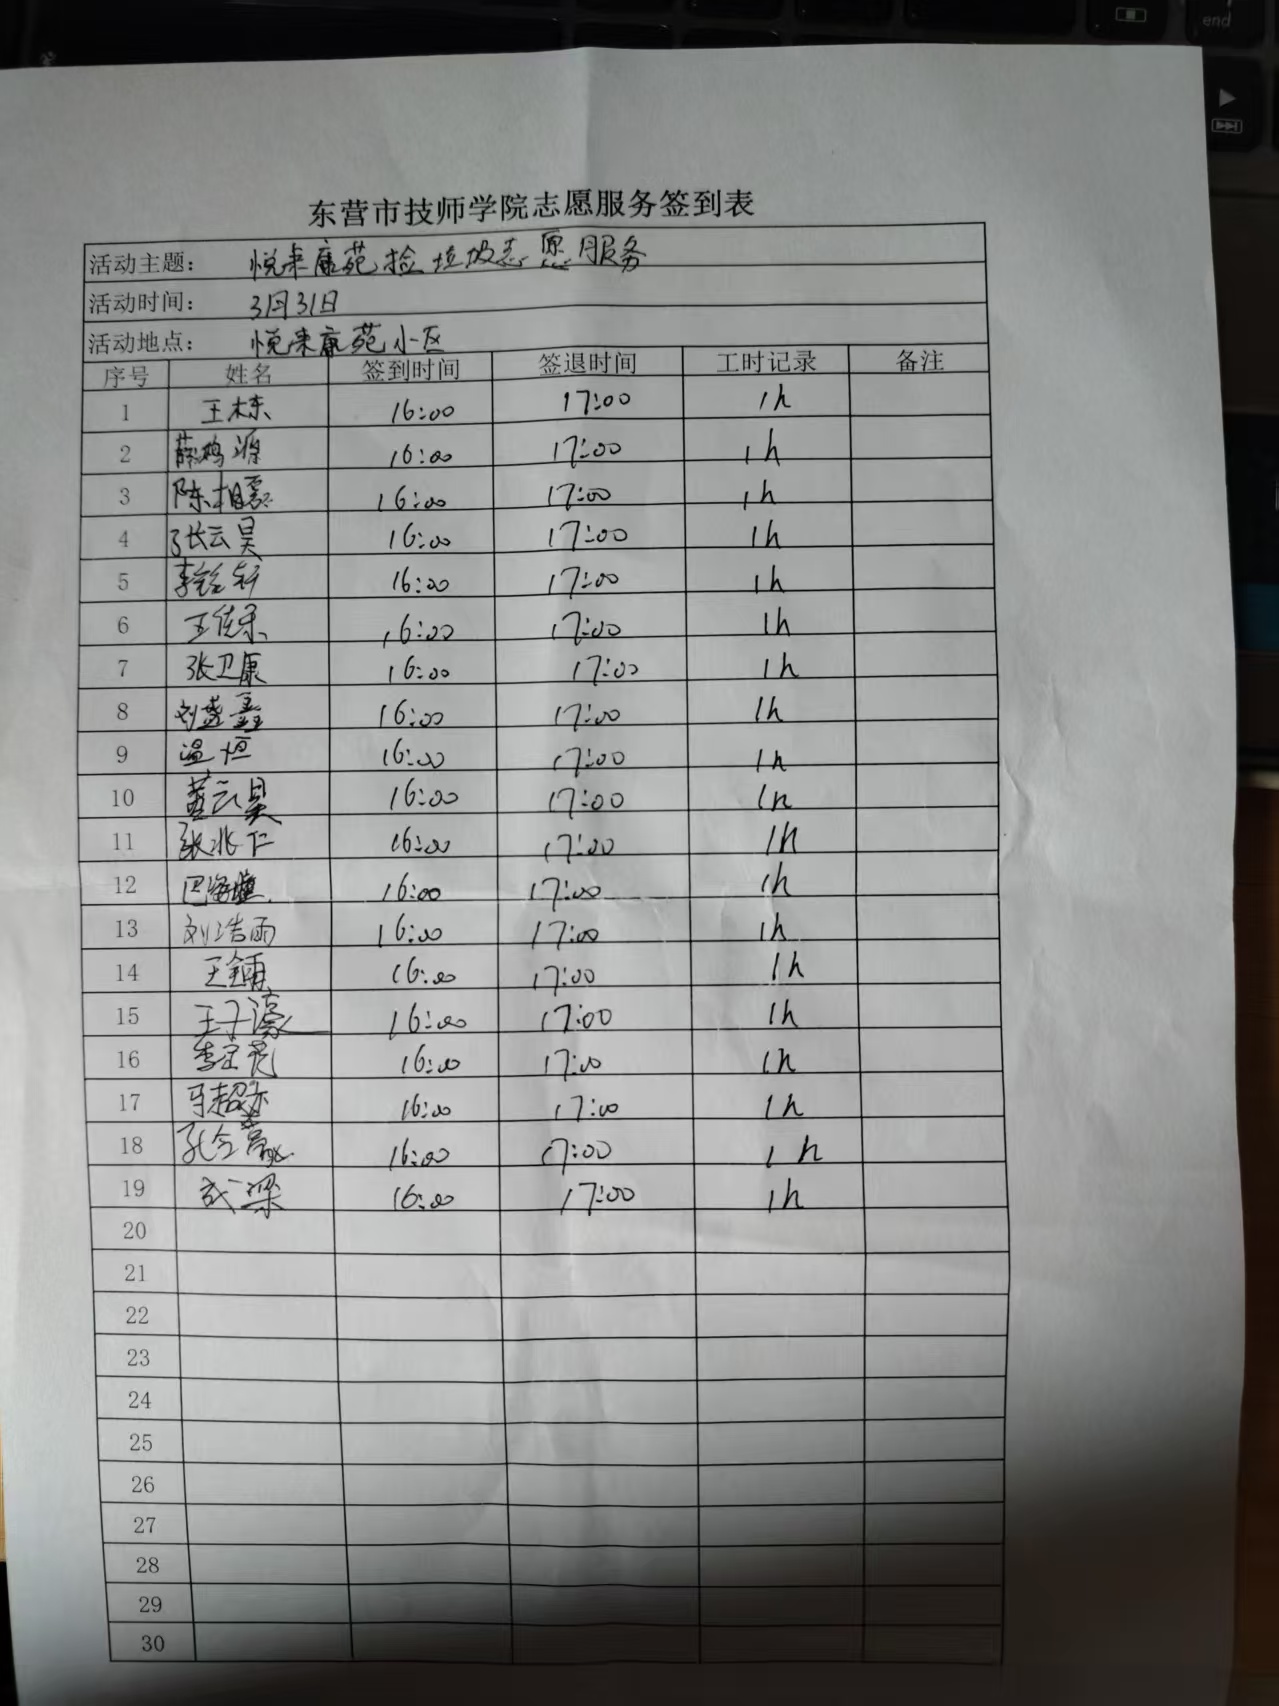 end
东营市技师学院志愿服务签到表
活动主题： 悦来康苑捡垃圾志愿服务
活动时间： 3月31日
活动地点： 悦来康苑小区
序号 姓名 签到时间 签退时间 工时记录 备注
1 王栋 16:00 17:00 1h
2 薛鸿源 16:00 17:00 1h
3 陈相 16:00 17:00 1h
4 张云昊 16:00 17:00 1h
5 李铭轩 16:00 17:00 1h
6 王佳乐 16:00 17:00 1h
7 张卫康 16:00 17:00 1h
8 刘盛鑫 16:00 17:00 1h
9 温恒 16:00 17:00 1h
10 董云昊 16:00 17:00 1h
11 张兆仁 16:00 17:00 1h
12 巴海 16:00 17:00 1h
13 刘浩雨 16:00 17:00 1h
14 王 16:00 17:00 1h
15 王子濠 16:00 17:00 1h
16 李 16:00 17:00 1h
17 马超 16:00 17:00 1h
18 孔令 16:00 17:00 1h
19 成梁 16:00 17:00 1h
20
21
22
23
24
25
26
27
28
29
30